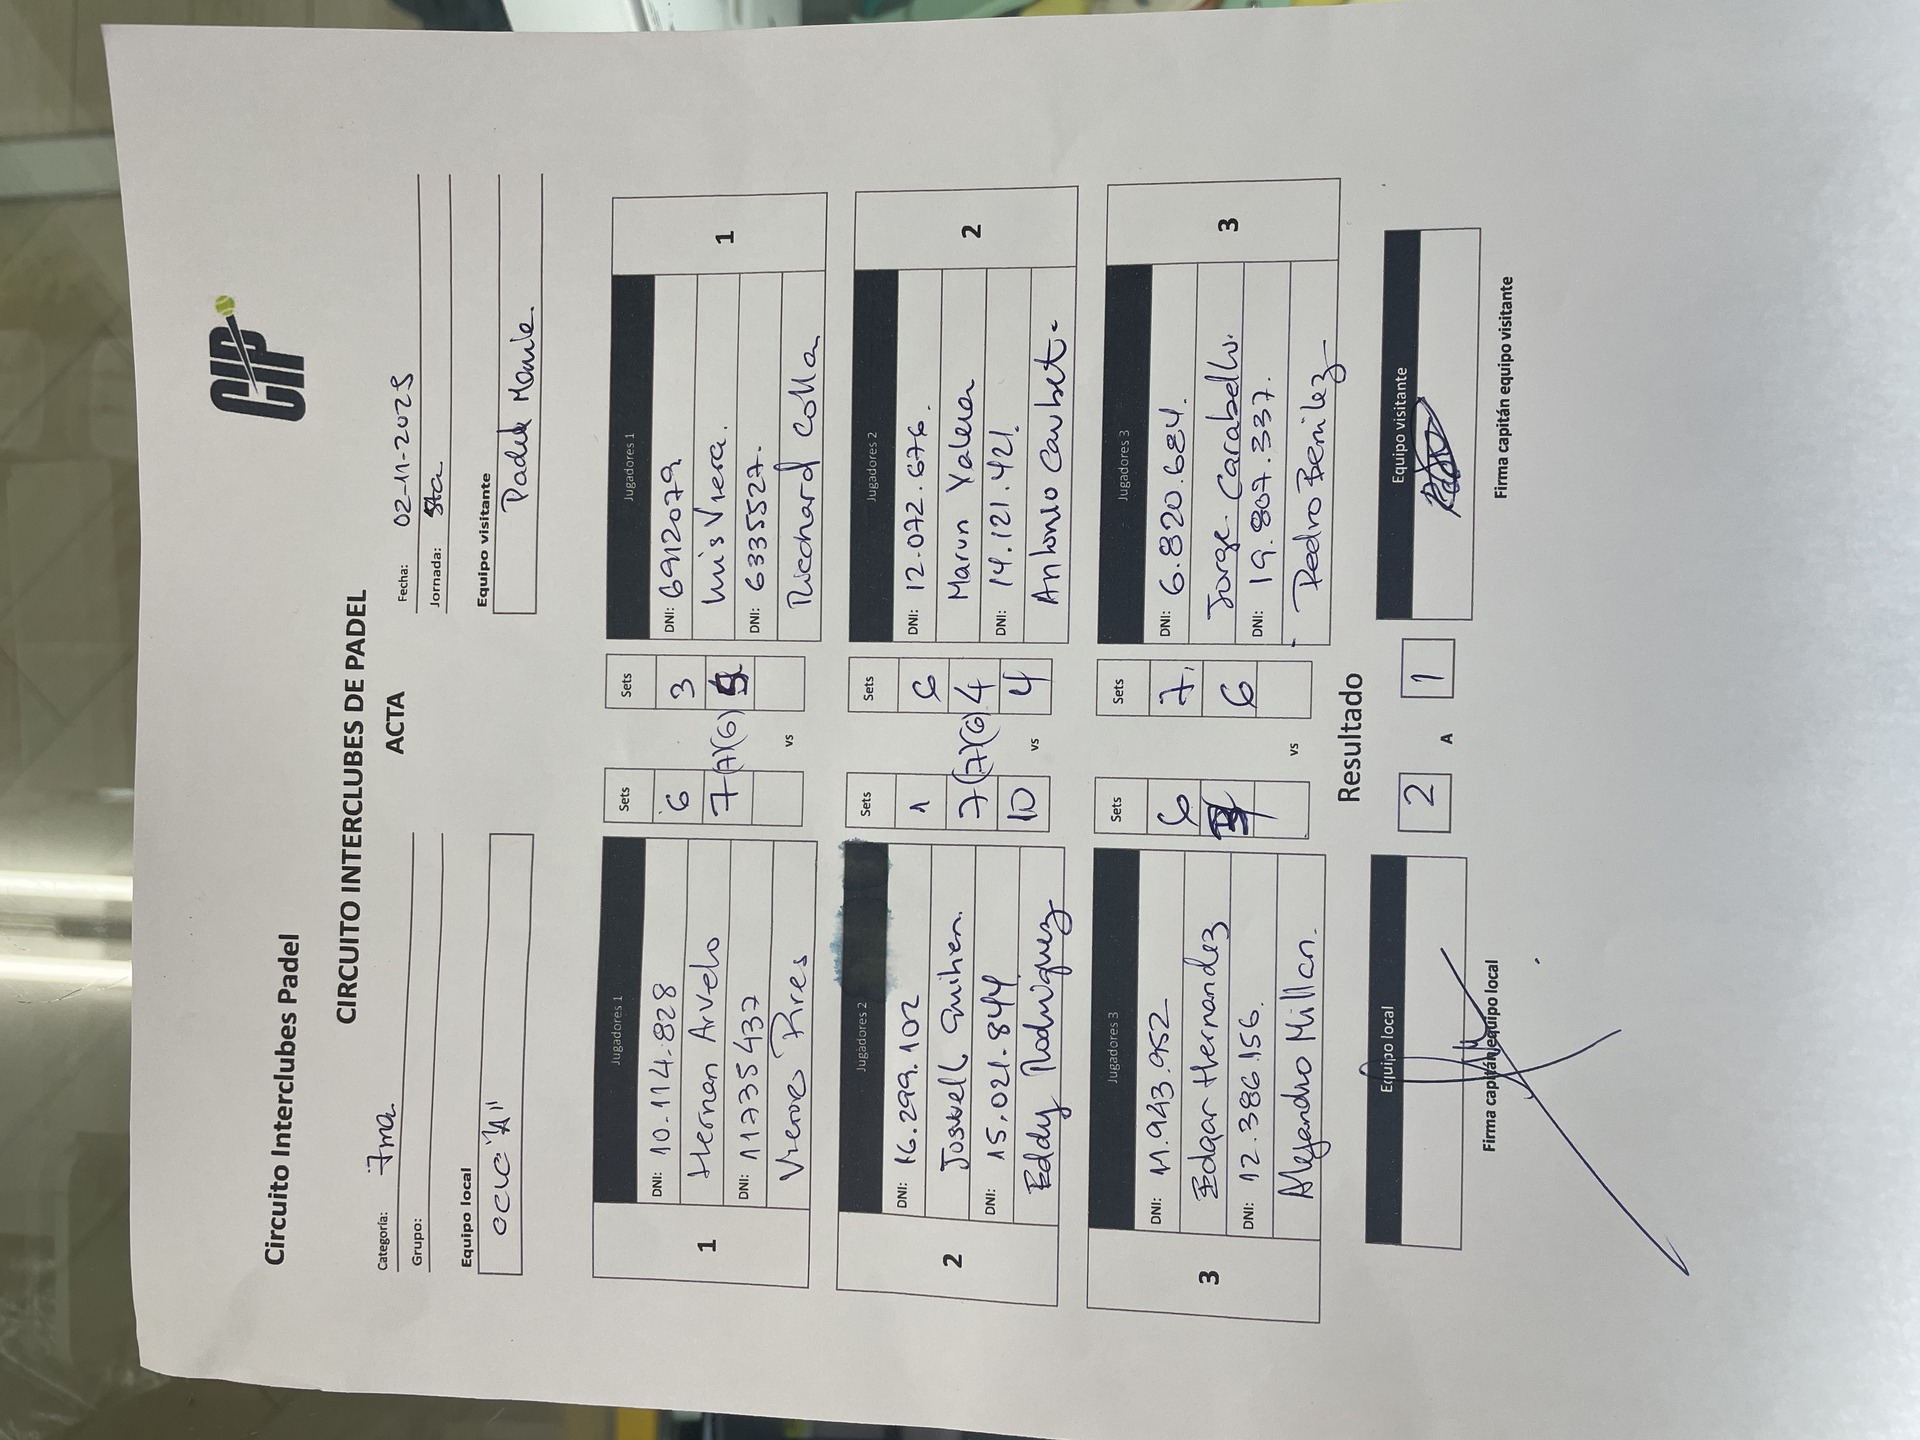 Circuito Interclubes Padel
CIP
CIRCUITO INTERCLUBES DE PADEL
ACTA
Categoría: 7ma.
Fecha: 02-11-2025
Grupo:
Jornada: 5ta
Equipo local
Equipo visitante
OCLC "A"
Padel Monle.
1
Jugadores 1
Sets
Sets
Jugadores 1
1
DNI: 10.114.828
6
3
DNI: 6912079
Hernan Arvelo
7(7)(6)
Luis Viera.
DNI: 11735437
DNI: 6335527.
Pires
vs
Richard Colla
2
Jugadores 2
Sets
Sets
Jugadores 2
2
DNI: 16.299.102
1
6
DNI: 12.072.676.
Joswell
7(7)(6)
4
Marun Yalena
DNI: 15.021.844
10
4
DNI: 14.121.421.
Eddy Rodriguez
vs
Antonio Caubet.
3
Jugadores 3
Sets
Sets
Jugadores 3
3
DNI: 11.943.952
6
7
DNI: 6.820.684.
Edgar Hernandez
6
Jorge Caraballo.
DNI: 12.386.156.
DNI: 19.807.337.
Alejandro Millan.
vs
Pedro Benilez
Resultado
Equipo local
2
A
1
Equipo visitante
Firma capitán equipo local
Firma capitán equipo visitante